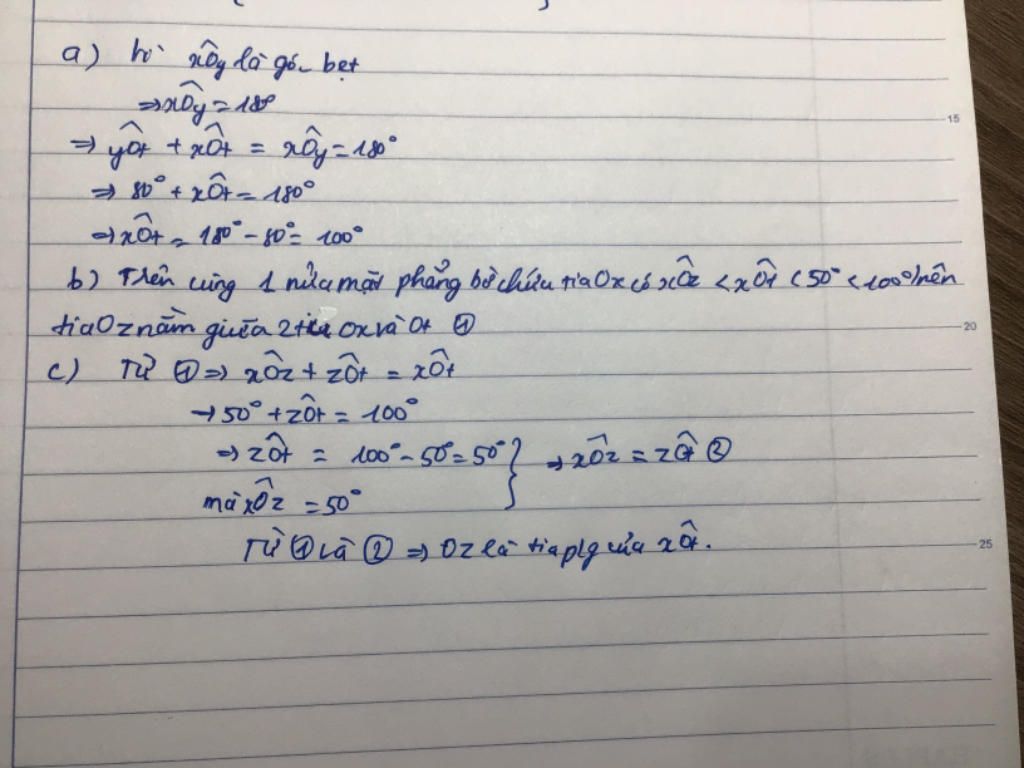 a) Vì xÔy là góc bẹt
⇒ xÔy = 180°
⇒ yÔt + xÔt = xÔy = 180°
⇒ 80° + xÔt = 180°
⇒ xÔt = 180° - 80° = 100°
b) Trên cùng 1 nửa mặt phẳng bờ chứa tia Ox có xÔz < xÔt (50° < 100°) nên
tia Oz nằm giữa 2 tia Ox và Ot ①
c) Từ ① ⇒ xÔz + zÔt = xÔt
→ 50° + zÔt = 100°
⇒ zÔt = 100° - 50° = 50° } ⇒ xÔz = zÔt ②
mà xÔz = 50°
Từ ① và ② ⇒ Oz là tia p/g của xÔt.
15
20
25